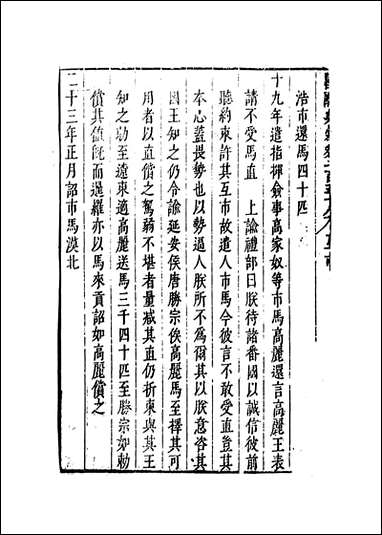 浩市還馬四十匹
十九年遣指揮僉事高家奴等市馬高麗還言高麗王表
請不受馬直　上諭禮部曰朕待諸番國以誠信彼前
聽約束許其互市故遣人市馬今彼言不敢受直豈其
本心蓋畏勢也以勢逼人朕所不為爾其以朕意咨其
國王知之仍令諭延安侯唐勝宗俟高麗馬至擇其可
用者以直償之駑弱不堪者量減其直仍折柬與其王
知之勑至遼東適高麗送馬三千四十匹至勝宗如勑
償其值旣而暹羅亦以馬來貢詔如高麗償之
二十三年正月詔市馬漠北